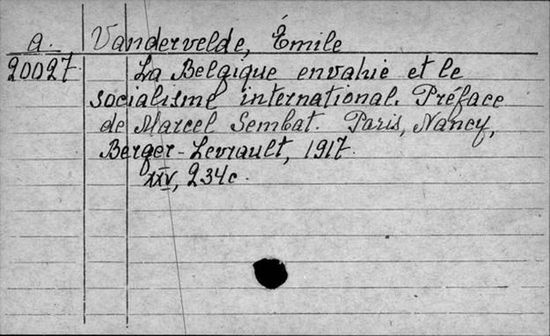 a. Vandervelde, Émile
20027. La Belgique envahie et le
socialisme international. Préface
de Marcel Sembat. Paris, Nancy,
Berger-Levrault, 1917.
XXV, 234c.